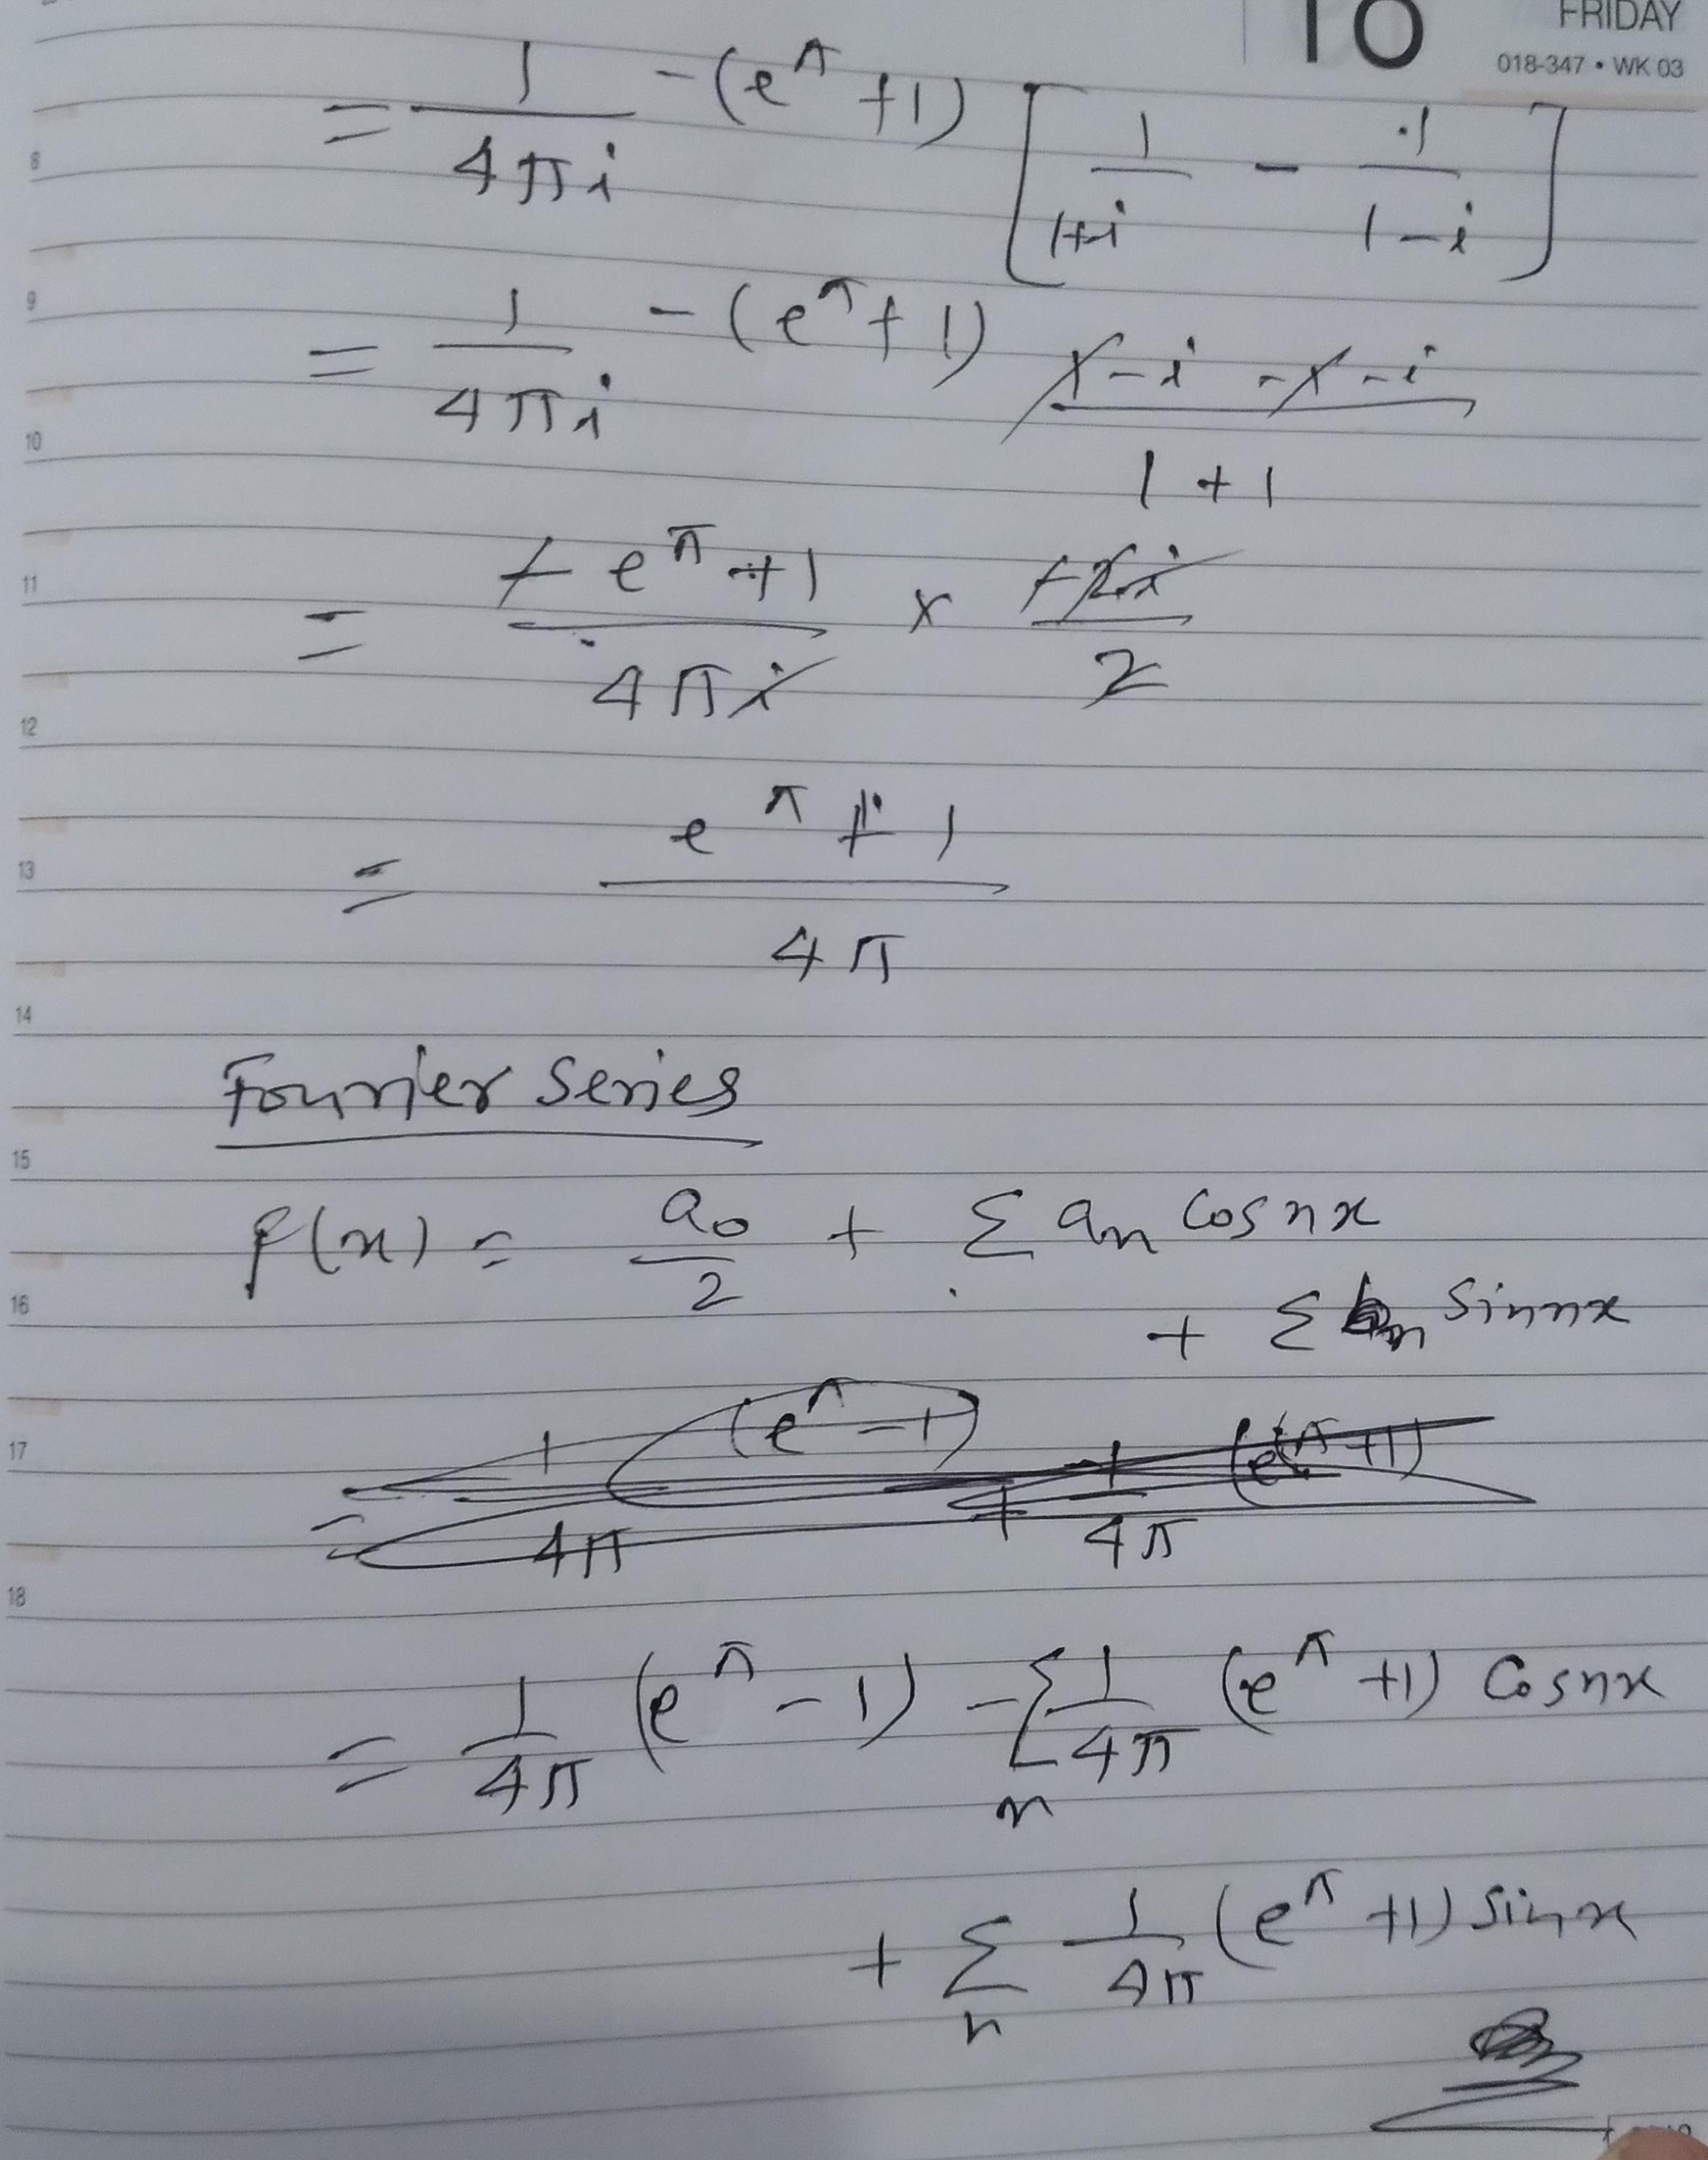 10 FRIDAY
018-347 • WK 03
= 1/4πi -(e^π +1) [1/1+i - 1/1-i]
8
9
= 1/4πi -(e^π+1) 1-i-1-i/1+1
10
11
= -e^π+1/4πi x -2i/2
12
= e^π+1/4π
13
14
Fourier Series
15
f(x) = a₀/2 + Σ aₙ cosnx
16
+ Σ bₙ Sinnx
17
= 1/4π (e^π-1) + 1/4π (e^π+1)
18
= 1/4π (e^π-1) - Σₙ 1/4π (e^π+1) Cosnx
+ Σₙ 1/4π (e^π+1) Sinx